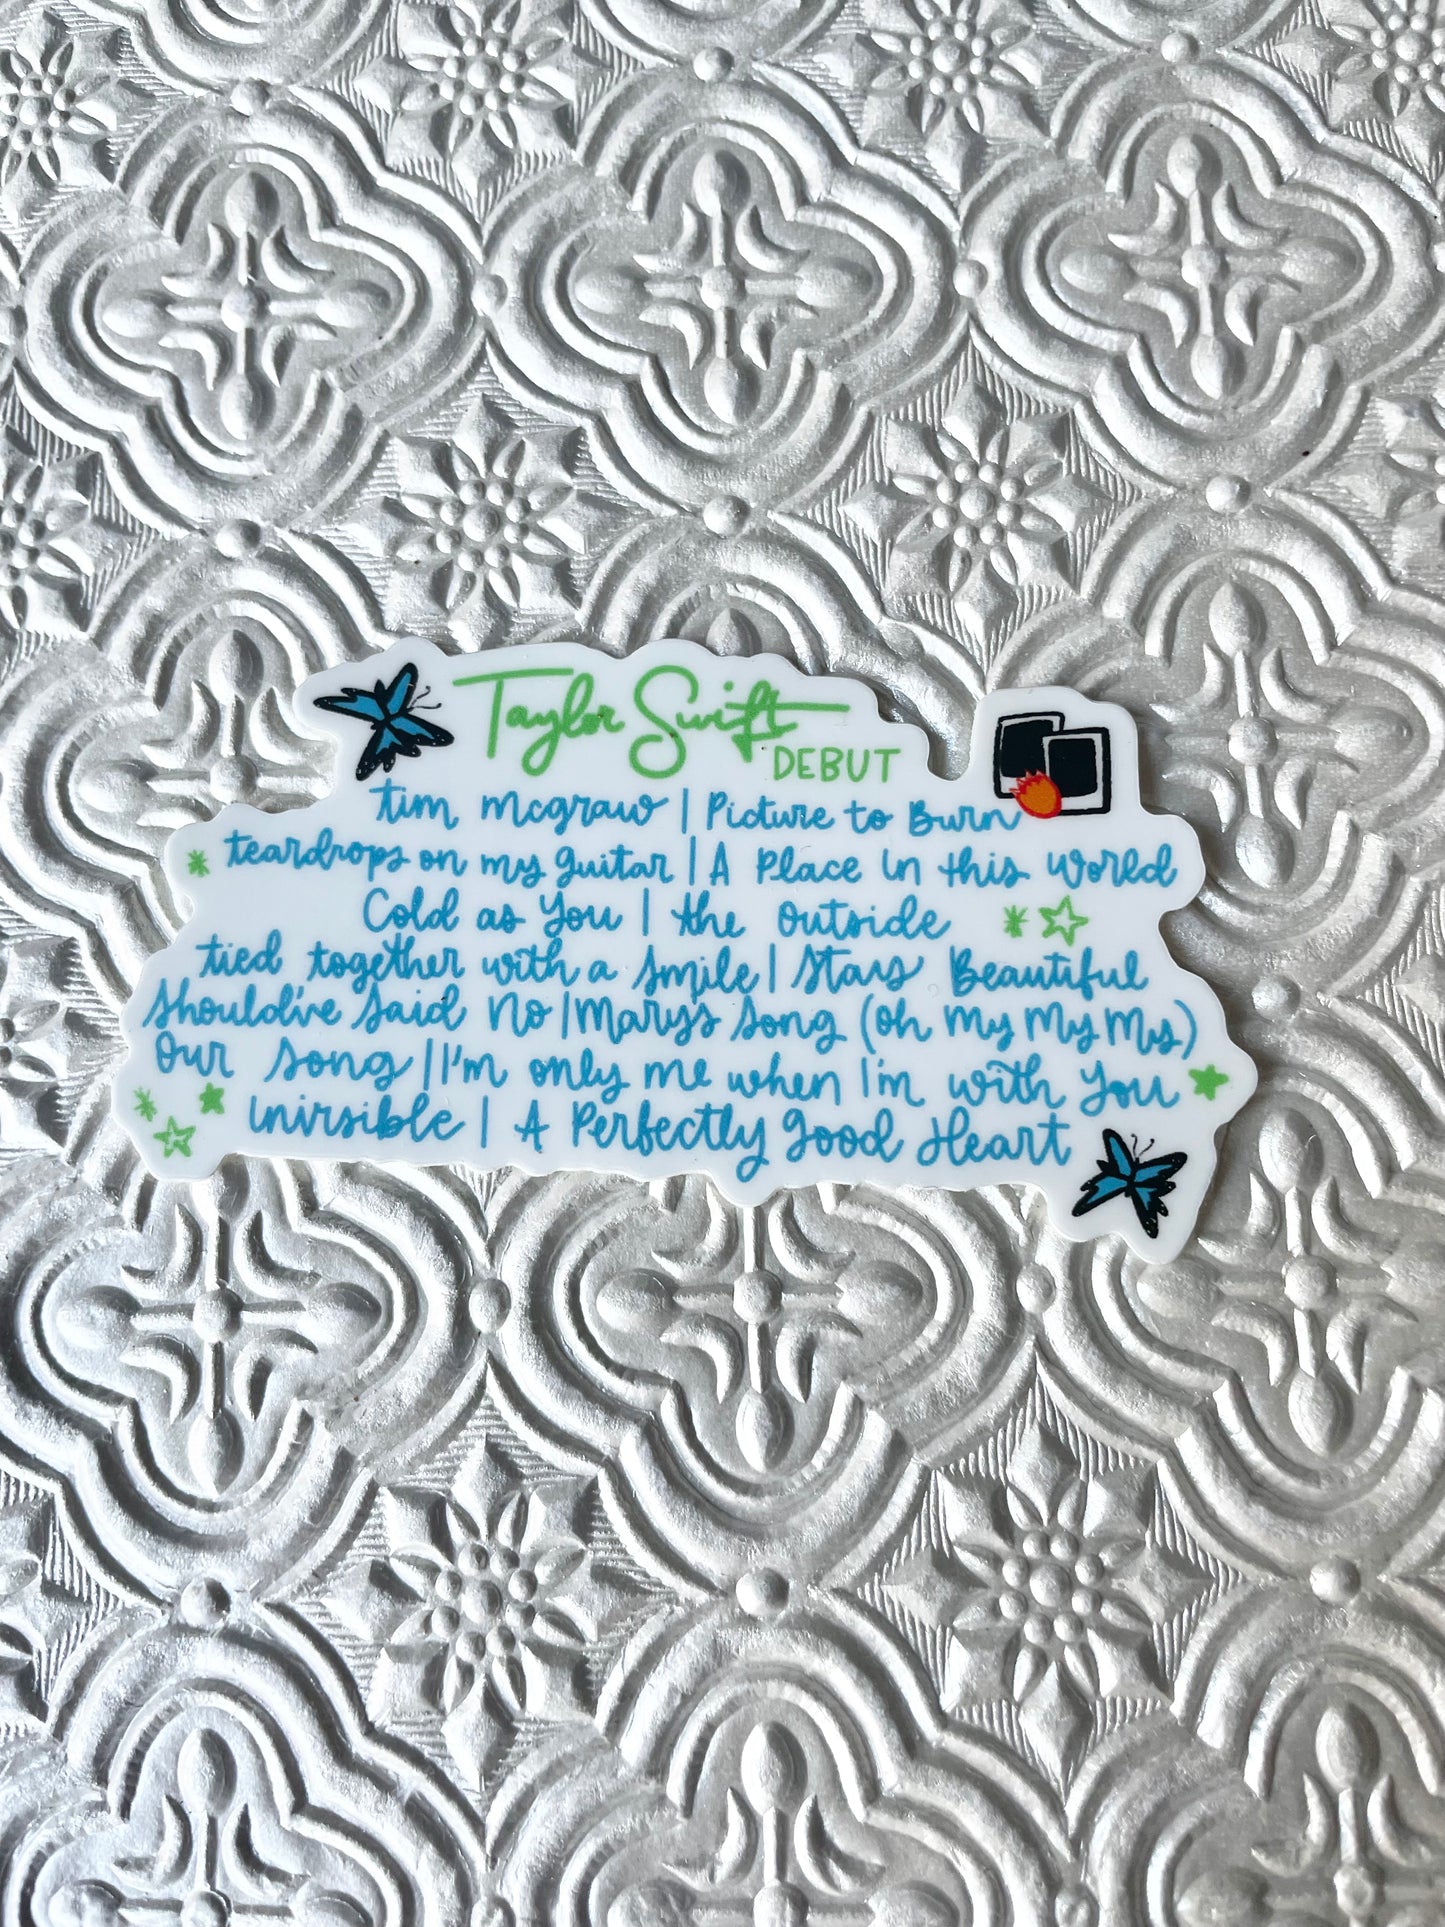 Taylor Swift
DEBUT
tim mcgraw | Picture to Burn
teardrops on my guitar | A Place in this World
Cold as You | the outside
tied together with a smile | Stay Beautiful
Should've Said No | Mary's Song (Oh My My My)
Our Song | I'm only me when I'm with You
Invirsible | A Perfectly Good Heart